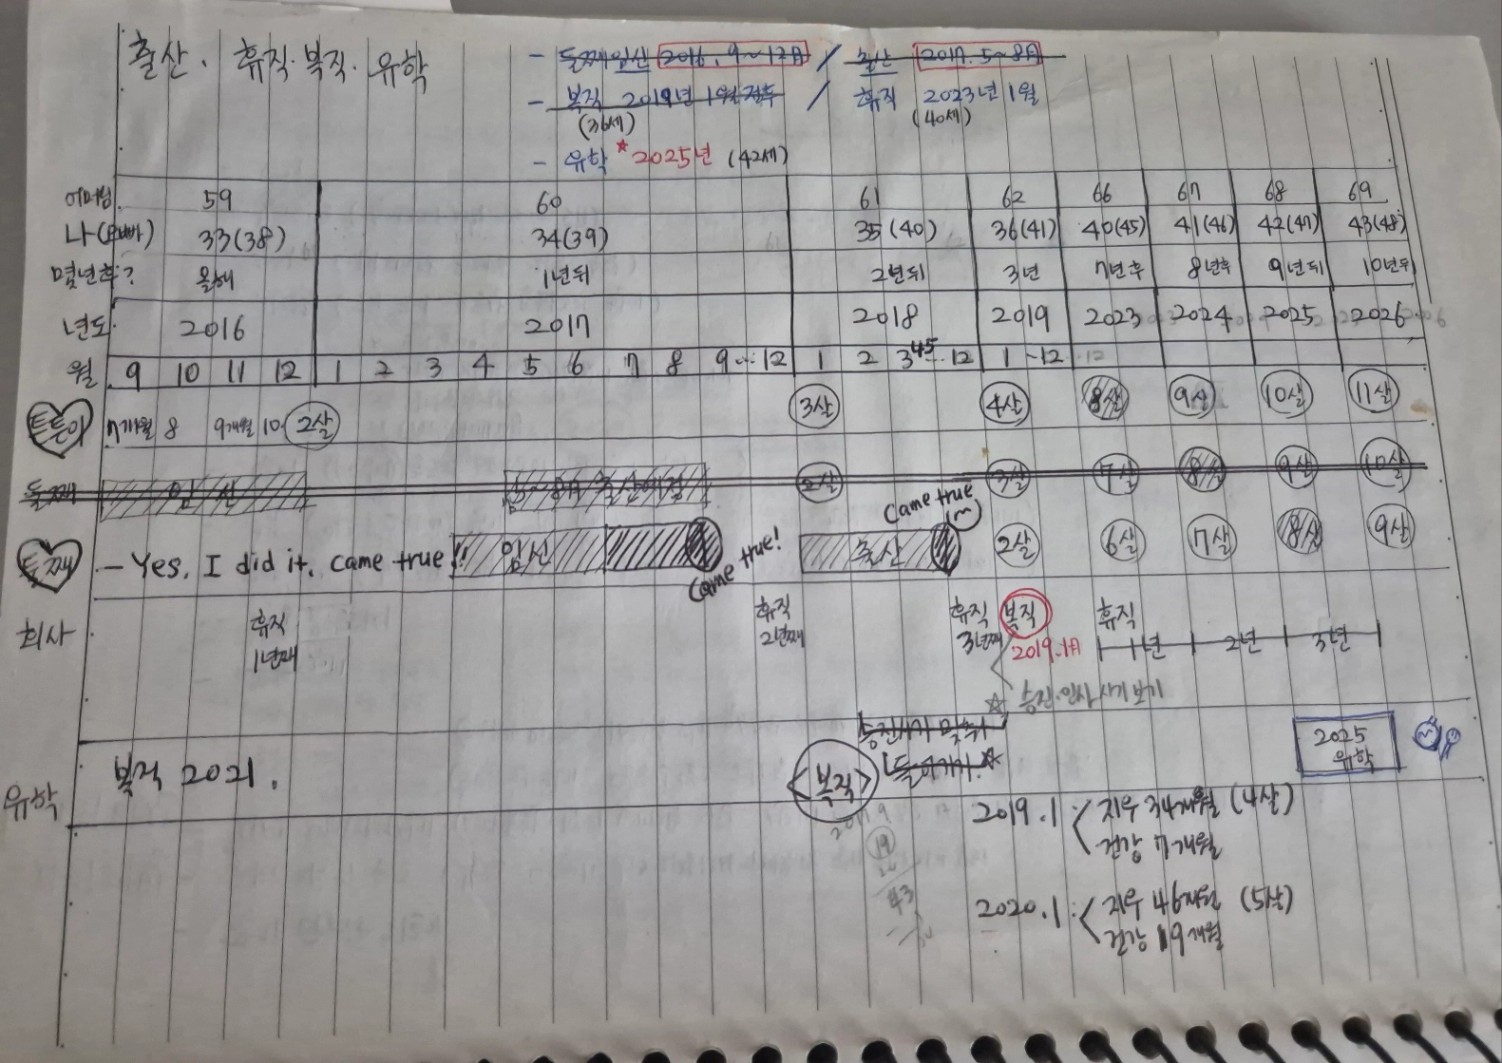 출산. 휴직. 복직. 유학
- 둘째임신 2016. 9~12月 / 출산 2017. 5~8月
- 복직 2019년 1월 / 휴직 2023년 1월
(36세) (40세)
- 유학 * 2025년 (42세)
어머님 59 60 61 62 66 67 68 69
나(오빠) 33(38) 34(39) 35(40) 36(41) 40(45) 41(46) 42(47) 43(48)
몇년후? 올해 1년뒤 2년뒤 3년 7년후 8년후 9년뒤 10년뒤
년도. 2016 2017 2018 2019 2023 2024 2025 2026
월 9 10 11 12 1 2 3 4 5 6 7 8 9 ... 12 1 2 3 4 5 ... 12 1 ~12 12
튼튼이 7개월 8 9개월 10 2살 3살 4살 8살 9살 10살 11살
둘째 임신 5~8月 출산예정 2살 3살 7살 8살 9살 10살
Came true
- Yes, I did it, came true!! 임신 came true! 출산 2살 6살 7살 8살 9살
회사 휴직 1년째 휴직 2년째 휴직 3년째 복직 2019.1月 휴직 1년 2년 3년
☆ 승진·인사시기보기
승진시기 맞춰서
유학 복직 2021. <복직> 들어가기.* 2025 유학
2017.9
19
43
2019.1 < 지우 34개월 (4살)
건강 7개월
2020.1 : < 지우 46개월 (5살)
건강 19개월